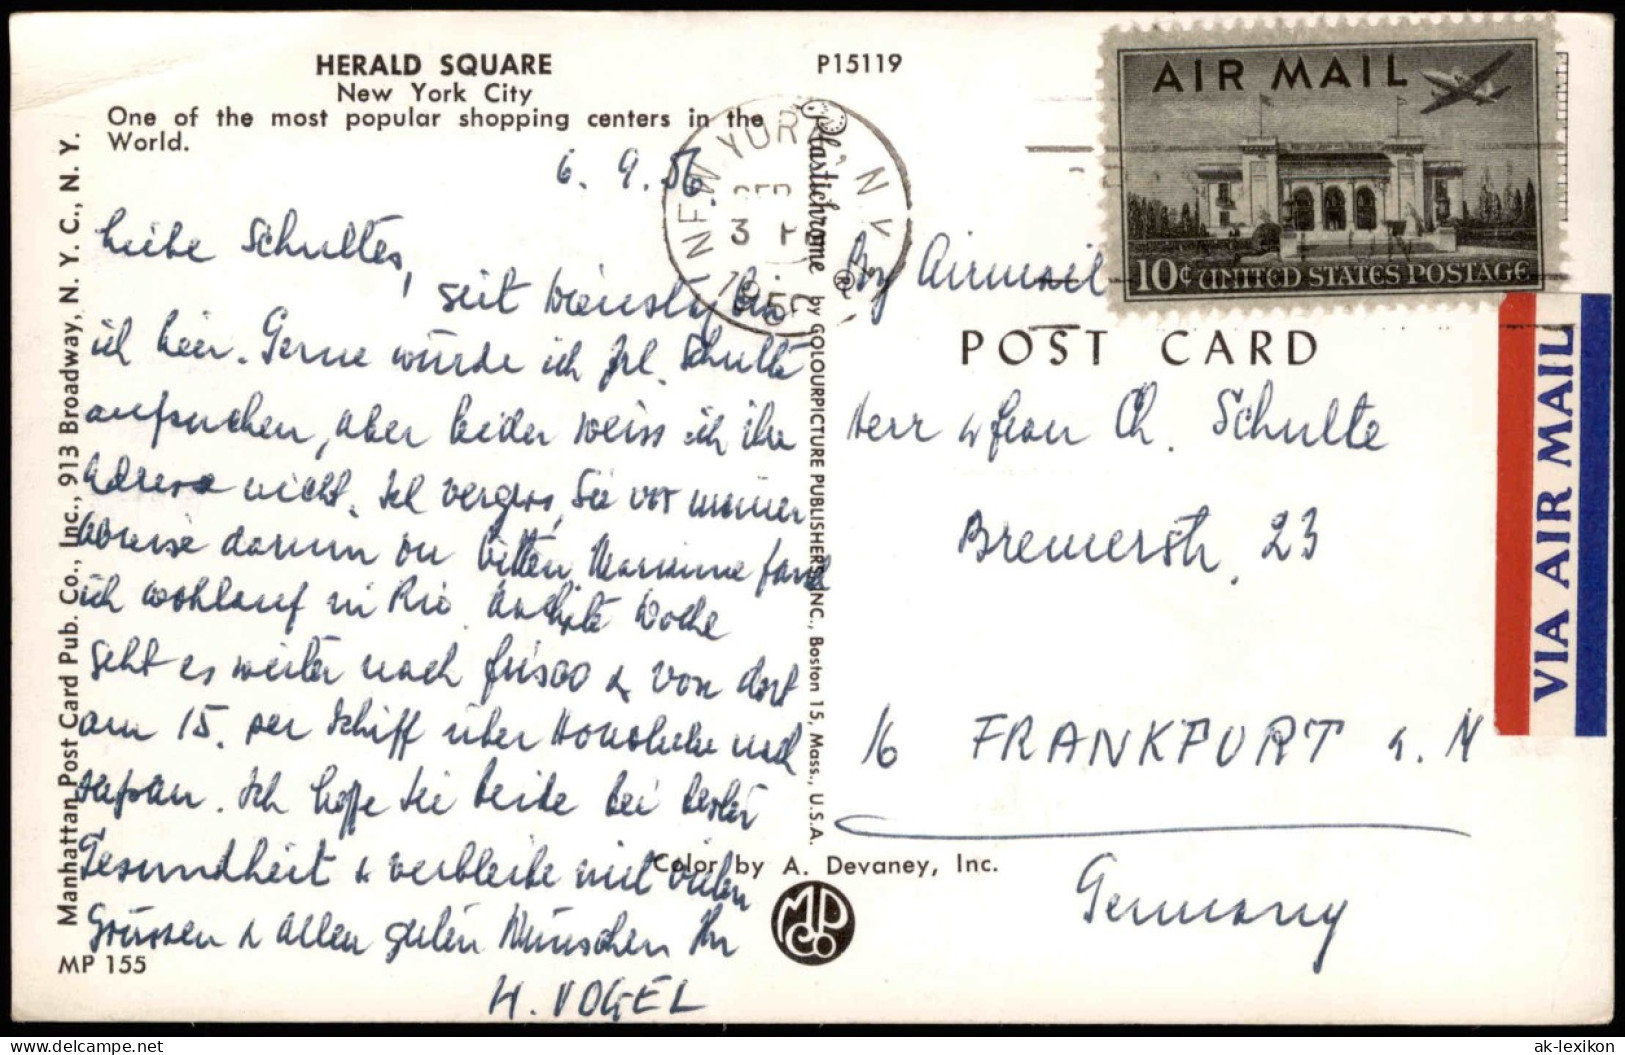 HERALD SQUARE
New York City
One of the most popular shopping centers in the
World.
P15119
6. 9. 56
Liebe Schultes,
seit Dienstag bin
ich hier. Gerne würde ich Frl. Schulte
aufsuchen, aber leider weiss ich ihre
Adresse nicht. Ich vergass, Sie vor meiner
Abreise darum zu bitten. Marianne fand
ich wohlauf in Rio. Nächste Woche
geht es weiter nach Frisco & von dort
am 15. per Schiff über Honolulu nach
Japan. Ich hoffe Sie beide bei bester
Gesundheit & verbleibe mit vielen
Grüssen & allen guten Wünschen Ihr
H. VOGEL
MP 155
Manhattan Post Card Pub. Co., Inc., 913 Broadway, N. Y. C., N. Y.
Plastichrome ® by COLOURPICTURE PUBLISHERS, INC., Boston 15, Mass., U.S.A.
Color by A. Devaney, Inc.
MPCo
NEW YORK, N.Y.
SEP
3 P
AIR MAIL
10¢ UNITED STATES POSTAGE
By Airmail
POST CARD
VIA AIR MAIL
Herr & Frau Ch. Schulte
Bremerstr. 23
16 FRANKFURT a. M
Germany
delcampe.net
ak-lexikon